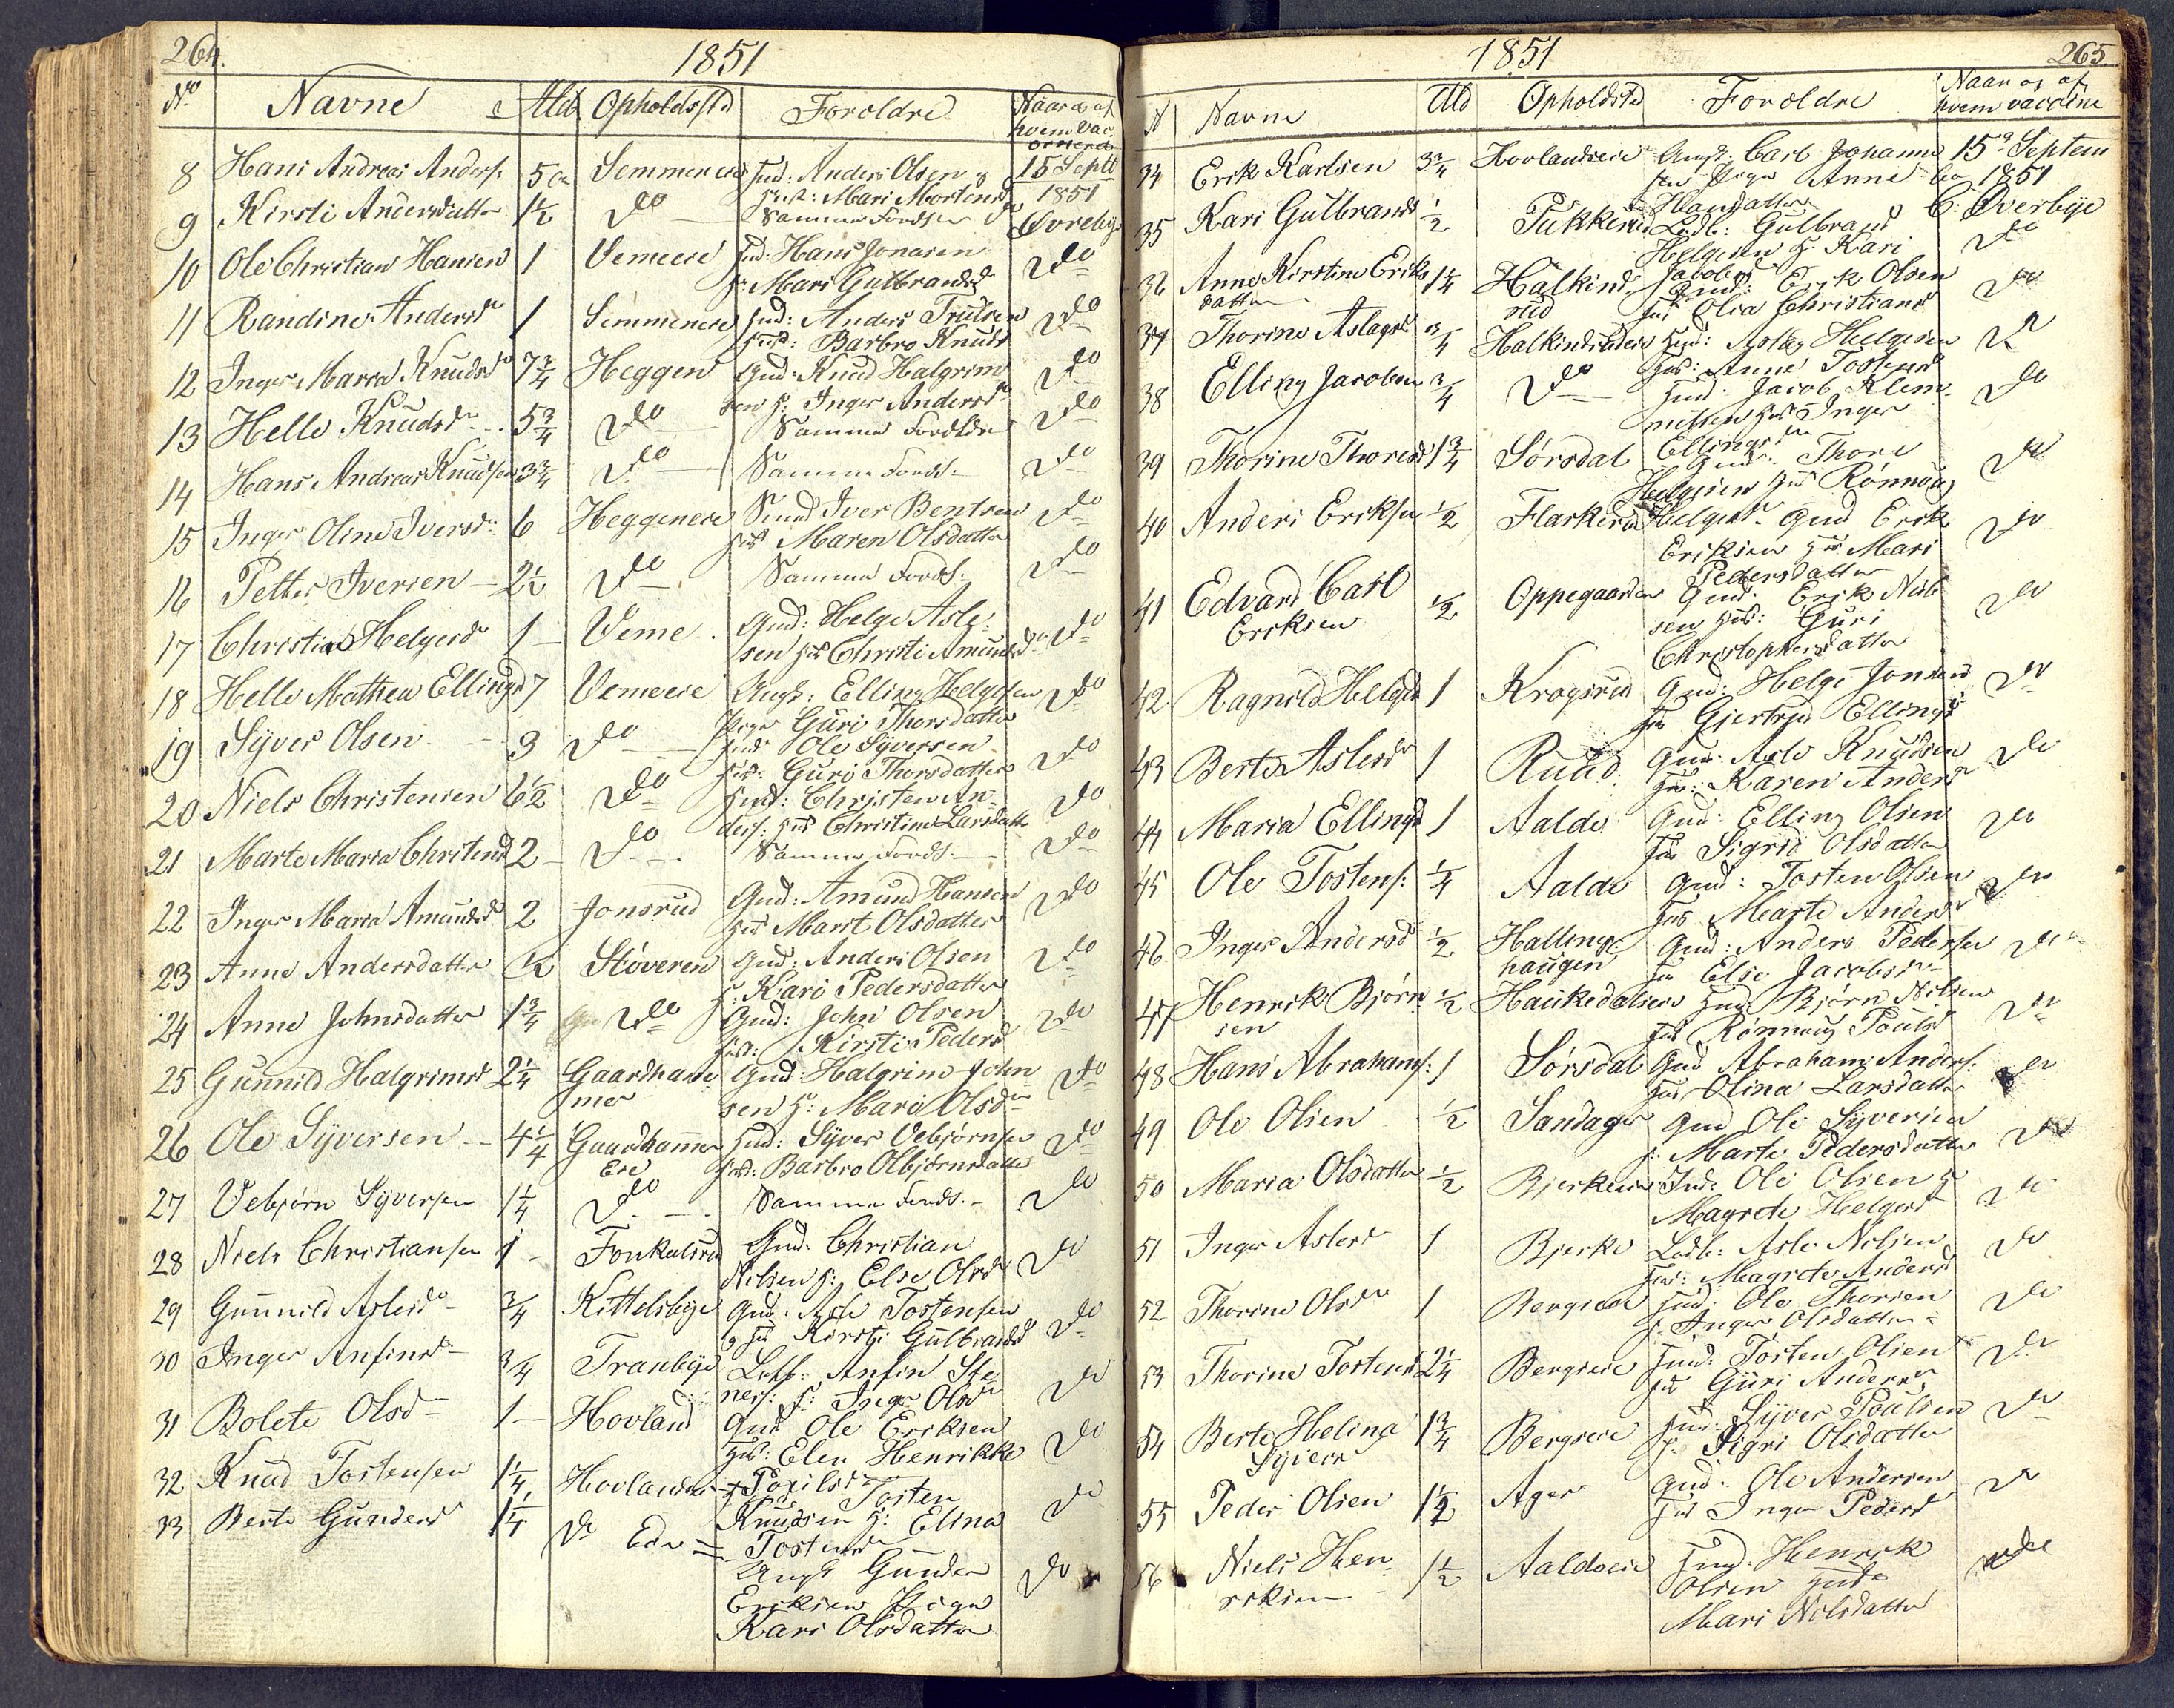 264.
1851
No Navne Ald Opholdsstd Foroldre Naar og af hvem Vac
8 Hans Andreas Anders: 5 Semmenere Hmd: Anders Olsen og 15 Septb
Hust: Mari Mortensd 1851
9 Kirsti Andersdatter 1½ Do Samme Foreldre Øverbye
10 Ole Christian Hansen 1 Vemeeie Hmd: Hans Jonasen Do
H: Mari Gulbrandsd
11 Randine Andersd 1 Semmenere Hmd: Anders Trulsen Do
Hust: Barbro Knuds
12 Inger Maria Knudsd 7¾ Heggen Gmd: Knud Halgrim Do
sen H: Inger Andersd
13 Helle Knudsd 5¾ Do Samme Foreldre Do
14 Hans Andreas Knudsen 3¾ Do Samme Forels: Do
15 Inger Oline Iversd 6 Heggenere Iver Bentsen Do
Hust Maren Olsdatter
16 Petter Iversen 2½ Do Samme Forels: Do
17 Christia Helgesd 1 Veme Gmd: Helge Asle: Do
sen Hust Christi Amunds
18 Helle Mathea Ellingsd 7 Vemeeie Ungk: Elling Helgesen Do
Pige Guri Thorsdatter
19 Syver Olsen 3 Do Hmd Ole Syversen Do
Hust: Guri Thorsdatter
20 Niels Christensen 6½ Do Hmd: Christen An- Do
ders: Hust Christine Larsdatt
21 Marte Maria Christensd 2 Do Samme Forels: Do
22 Inger Maria Amundsd 2 Jonsrud Gmd: Amund Hansen Do
Hust Marit Olsdatter
23 Anne Andersdatter ½ Støveren Gmd: Anders Olsen Do
H: Kari Pedersdatter
24 Anne Johnsdatter 1¾ Do Gmd: John Olsen Do
Hust: Kirsti Pedersd
25 Gunnild Halgrimsd 2¼ Gaardham Gmd: Halgrim John Do
mer sen H: Mari Olsd
26 Ole Syversen 4¼ Gaardhammer Hmd: Syver Vebjørnsen Do
Eie Hust: Barbro Olbjørnsdatter
27 Vebjørn Syversen 1¼ Do Samme Forels. Do
28 Niels Christiansen 1 Fonkalsrud Gmd: Christian Do
Nilsen H: Else Olsd
29 Gunnild Aslesd ¾ Kittelsbye Gmd: Asle Tostensen Do
og Hust Kirsti Gulbrandsd
30 Inger Anfinsd ¾ Tranbye Anfin Ste Do
ners: H: Inger Olsd
31 Bolete Olsd 1 Hovland Gmd Ole Eriksen Do
Hust: Elen Henrikke
32 Knud Tostensen 1¼ Tosten Do
Knudsen H: Elina
33 Berte Gundersd 1¼ Do Eie Tostensd
Ungk Gunder Do
Eriksen Pige
Kari Olsdatter
1851
265
N Navne Ald Opholdste Foroldre Naar og af hvem vaccine
34 Erik Karlsen 3¾ Hovlandseie Ungk: Carl Johanne 15 Septem
sen Pige Anne 1851
Hansdatter C: Øverbye
35 Kari Gulbrandsd ½ Gulbrand
Helgesen H: Kari Do
Jacobsd
36 Anne Kirstine Eriks 1¼ Halkinds Gmd: Erik Olsen Do
datter rud Hust Olia Christiansd
37 Thorine Aslagsd ¾ Hmd: Aslag Helgesen Do
Hust: Anne Tostensd
38 Elling Jacobsen ¾ Do Hmd. Jacob Klem- Do
metsen Hust Inger
Ellingsd
39 Thorine Thoresd 1¾ Sørsdal Gmd: Thore Do
Helgesen Hust Rønnaug
Helgesd
40 Anders Eriksen ½ Flaskerud Gmd Erik Do
Eriksen Hust Mari
Pedersdatter
41 Edvard Carl ½ Oppegaarden Gmd: Erik Nils Do
Eriksen sen Hust: Guri
Christophersdatter
42 Ragnild Helgesd 1 Krogsrud Gmd: Helge Jonsen Do
Hust Gjertrud Ellingsd
43 Berte Aslesd 1 Ruud Gmd: Asle Knudsen Do
Hust: Karen Andersd
44 Maria Ellingsd 1 Aalde Gmd: Elling Olsen Do
Hust Sigrid Olsdatter
45 Ole Tostens: ¼ Aalde Gmd: Tosten Olsen Do
Hust Marte Andersd
46 Inger Andersd ½ Hallings- Gmd: Anders Pedersen Do
haugen Hust Else Jacobsd
47 Henrik Bjørn ½ Haukedalseie Hmd Bjørn Nilsen Do
sen Hust Rønnaug Poulsd
48 Hans Abrahams: 1 Sørsdal Gmd Abraham Anders: Do
Hust Olina Larsdatter
49 Ole Olsen ½ Sandager Gmd Ole Syversen Do
H: Marte Pedersdatter
50 Maria Olsdatter ½ Bjerkeeie Ind: Ole Olsen H Do
Magrete Helgesd
51 Inger Aslesd 1 Bjerke Asle Nilsen Do
Hust: Magrete Andersd
52 Thorine Olsd 1 Bergseie Hmd: Ole Thorsen Do
H: Inger Olsdatter
53 Thorine Tostensd 2¼ Bergseie Hmd: Tosten Olsen Do
Hust Guri Andersd
54 Berte Helina 1¾ Bergseie Hmd: Syver Poulsen Do
Syversd H. Sigri Olsdatter
55 Peder Olsen 1½ Ager Gmd: Ole Andersen Do
Hust Inger Pedersd
56 Niels Hen 1½ Aaldseie Hmd. Henrik Do
riksen Olsen Hust
Mari Nilsdatter